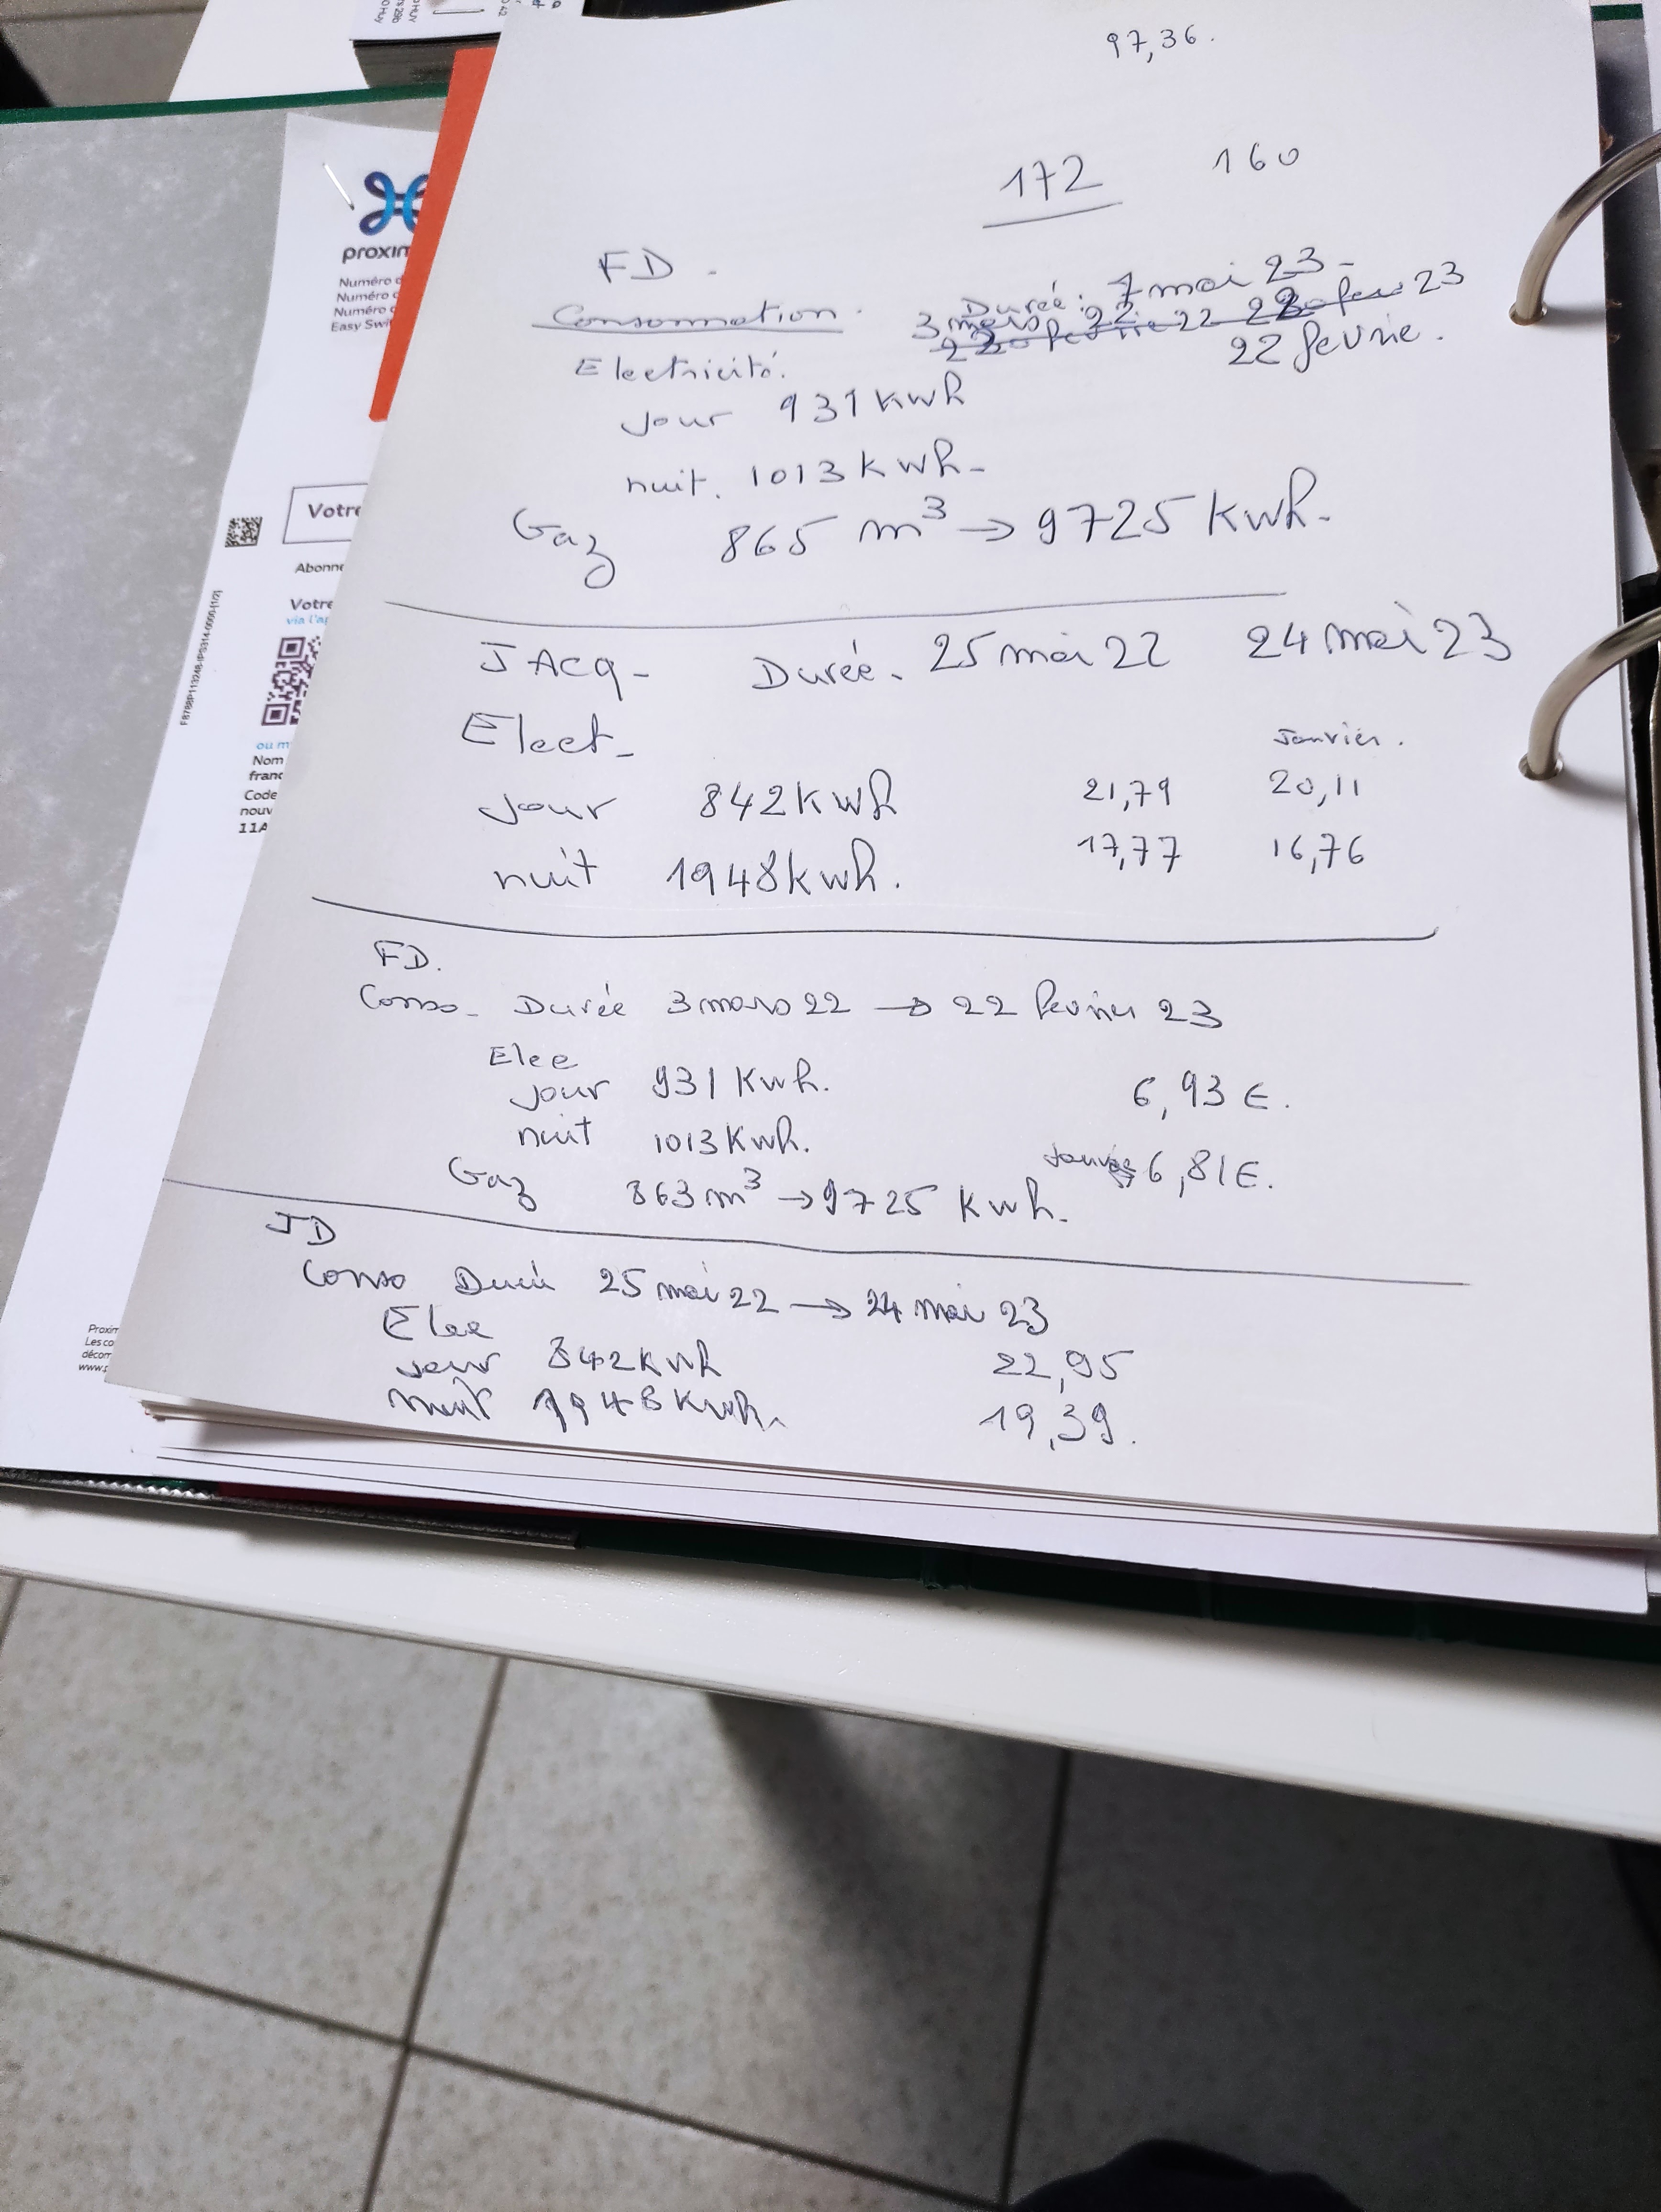 97,36.
172 160
FD.
Consommation. Durée: 7 mai 23-
3 mars 22
23
22 fevrie.
Electricité.
Jour 931 kwh
nuit. 1013 kwh-
Gaz 865 m³ → 9725 kwh.
JAcq- Durée. 25 mai 22 24 mai 23
Elect- Janvier.
Jour 842 kwh 21,79 20,11
nuit 1948 kwh. 17,77 16,76
FD.
Conso- Durée 3 mars 22 → 22 fevrier 23
Elec
Jour 931 Kwh. 6,93 €.
nuit 1013 Kwh.
6,81 €.
Gaz 863 m³ → 9725 kwh.
JD
Conso Durée 25 mai 22 → 24 mai 23
Elec
Jour 842 kwh 22,95
nuit 1948 kwh. 19,39.
proxim
Numéro d
Numéro c
Numéro c
Easy Swi
Votre
Abonne
Votre
via l'ap
F8788P113248-IPS314-0000-[1/2]
ou m
Nom
franc
Code
nouv
11A
Proxim
Les co
décom
www.p